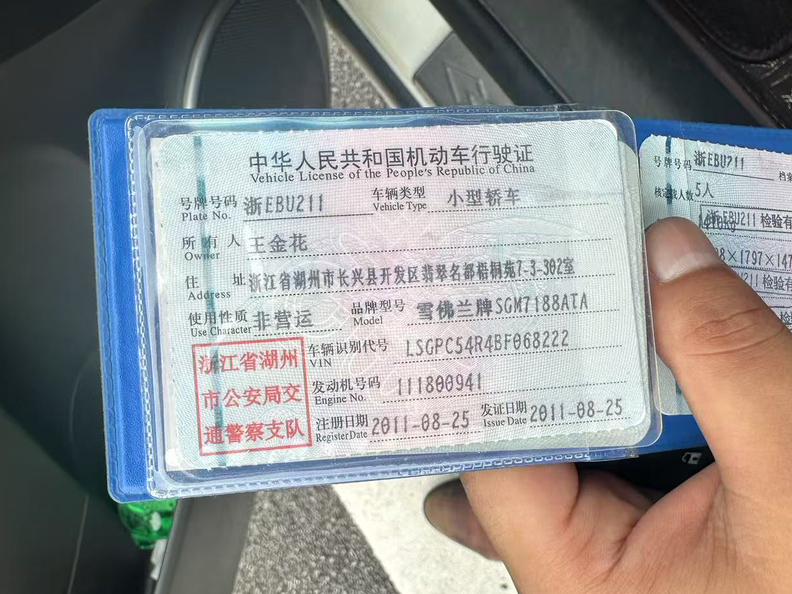 中华人民共和国机动车行驶证
Vehicle License of the People's Republic of China
号牌号码 浙EBU211 车辆类型 小型轿车
Plate No. Vehicle Type
所有人 王金花
Owner
住址 浙江省湖州市长兴县开发区翡翠名都梧桐苑7-3-302室
Address
使用性质 非营运 品牌型号 雪佛兰牌SGM7188ATA
Use Character Model
浙江省湖州
市公安局交
通警察支队
车辆识别代号 LSGPC54R4BF068222
VIN
发动机号码 111800941
Engine No.
注册日期 2011-08-25 发证日期 2011-08-25
Register Date Issue Date
号牌号码 浙EBU211 档案
核定载人数 5人
浙EBU211 检验有
×1797×147
211 检验有